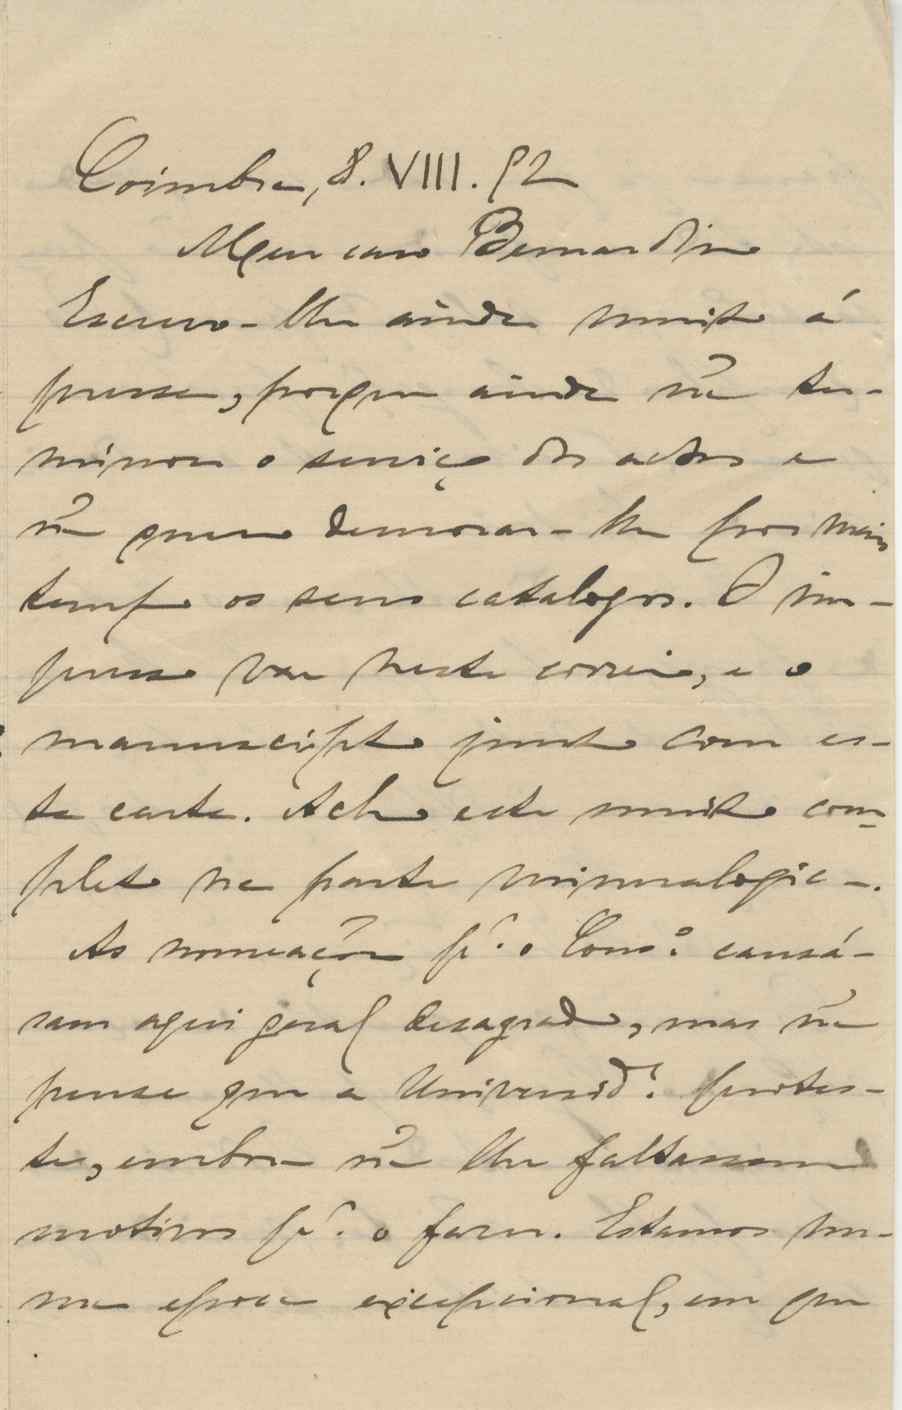 Coimbra, 8. VIII. 92
Meu caro Bernardino
Escrevo-lhe ainda muito á
pressa, porque ainda nã ter-
minou o serviço dos actos e
nã quero demorar-lhe por mais
tempo os seus catalogos. O im-
presso vae neste correio, e o
manuscripto junto com es-
ta carta. Acho este muito com-
pleto na parte mineralogica.
As nomeações pª. o Consº. causá-
ram aqui geral desagrado, mas nã
pense que a Universidᵉ. protes-
te, embora nã lhe faltassem
motivos pª. o fazer. Estamos nu-
ma epoca excepcional, em que